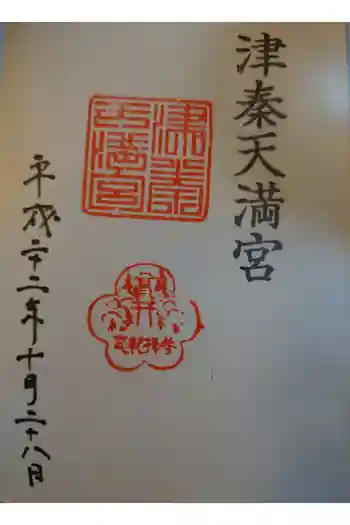 津秦天満宮
津秦
天満宮
平成二十二年十月二十八日